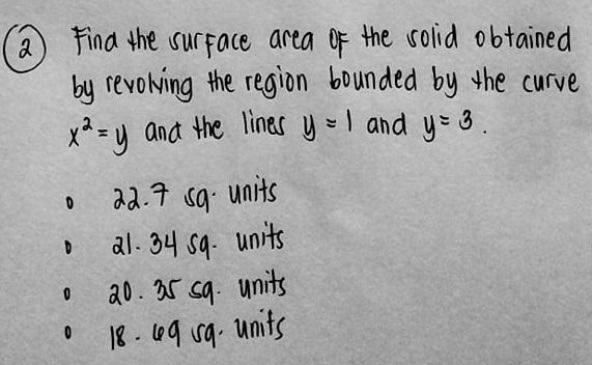 2 Find the surface area of the solid obtained
by revolving the region bounded by the curve
x² = y and the lines y = 1 and y = 3.
22.7 sq. units
21.34 sq. units
20.35 sq. units
18.69 sq. units